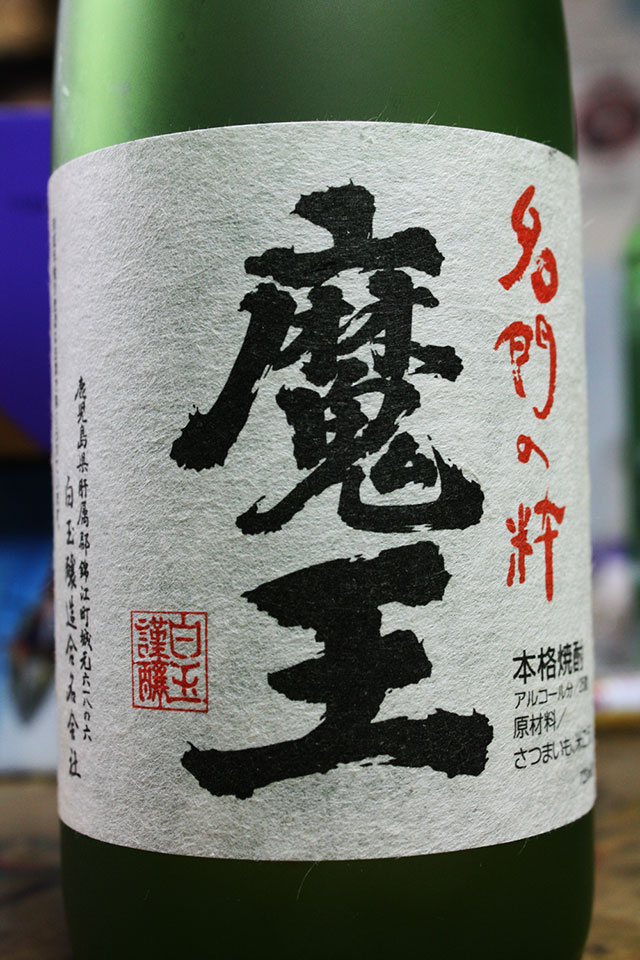 名門の粋
魔王
本格焼酎
アルコール分/25度
原材料/
さつまいも、米こうじ
白玉
謹醸
鹿児島県肝属郡錦江町城元六一八の六
白玉醸造合名会社